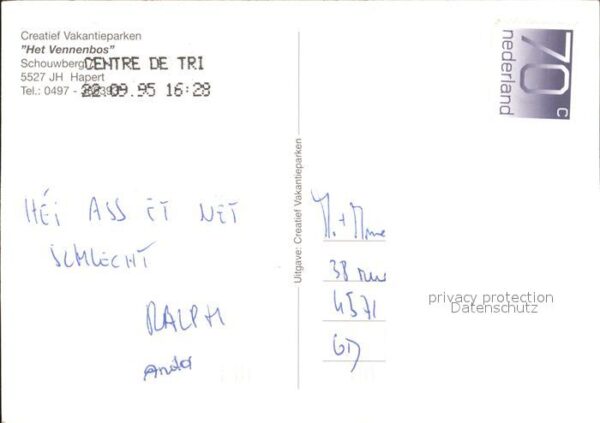 Creatief Vakantieparken
"Het Vennenbos"
Schouwberg
CENTRE DE TRI
5527 JH Hapert
Tel.: 0497 -
22.09.95 16:28
70 c
nederland
HÉI ASS ET NET
SCHLECHT
RALPH
Uitgave: Creatief Vakantieparken
M. + Mme
38 rue
4571
GD
privacy protection
Datenschutz